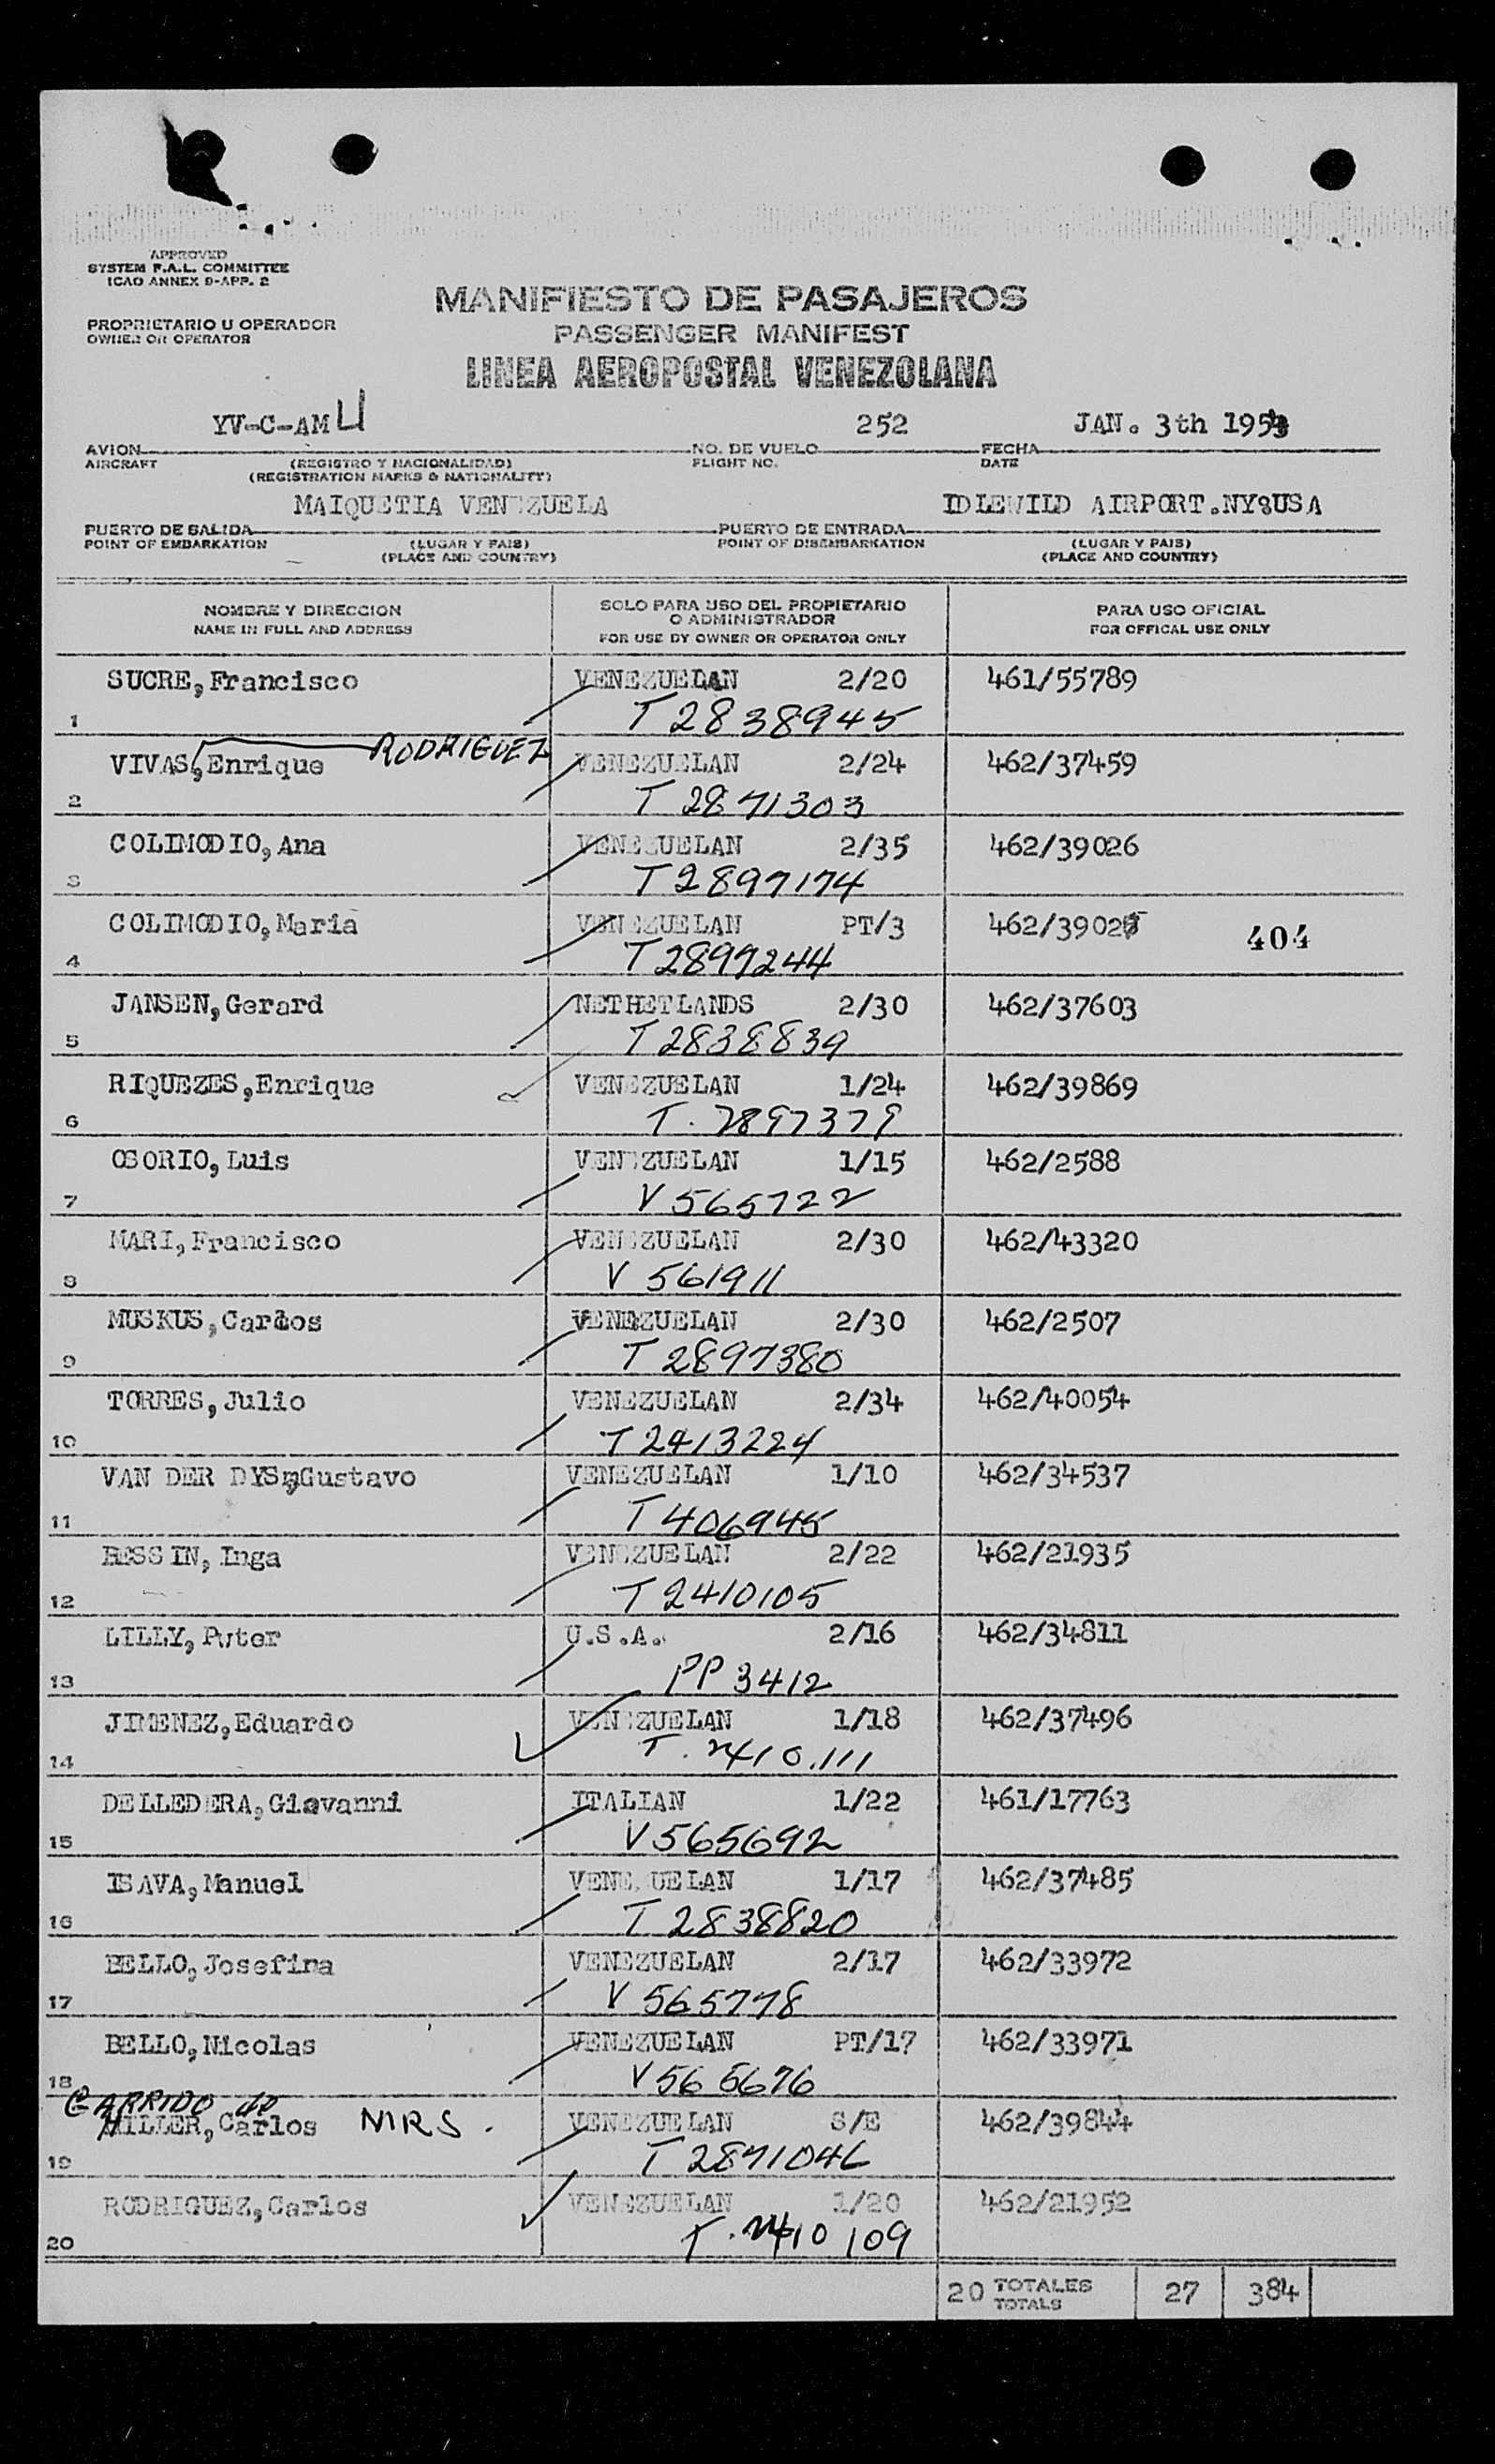 APPROVED
SYSTEM F.A.L. COMMITTEE
ICAO ANNEX 9-APP. 2
MANIFIESTO DE PASAJEROS
PROPRIETARIO U OPERADOR
OWNER OR OPERATOR
PASSENGER MANIFEST
LINEA AEROPOSTAL VENEZOLANA
YV-C-AMU 252 JAN. 3th 1953
AVION NO. DE VUELO FECHA
AIRCRAFT (REGISTRO Y NACIONALIDAD) FLIGHT NO. DATE
(REGISTRATION MARKS & NATIONALITY)
MAIQUETIA VENEZUELA IDLEWILD AIRPORT.NY&USA
PUERTO DE SALIDA PUERTO DE ENTRADA
POINT OF EMBARKATION (LUGAR Y PAIS) POINT OF DISEMBARKATION (LUGAR Y PAIS)
(PLACE AND COUNTRY) (PLACE AND COUNTRY)
NOMBRE Y DIRECCION SOLO PARA USO DEL PROPIETARIO PARA USO OFICIAL
O ADMINISTRADOR
NAME IN FULL AND ADDRESS FOR USE BY OWNER OR OPERATOR ONLY FOR OFFICAL USE ONLY
SUCRE, Francisco VENEZUELAN 2/20 461/55789
1 T 2838945
RODRIGUEZ
VIVAS, Enrique VENEZUELAN 2/24 462/37459
2 T 2871303
COLIMODIO, Ana VENEZUELAN 2/35 462/39026
3 T 2897174
COLIMODIO, Maria VENEZUELAN PT/3 462/39025 404
4 T 2897244
JANSEN, Gerard NETHETLANDS 2/30 462/37603
5 T 2838839
RIQUEZES, Enrique VENEZUELAN 1/24 462/39869
6 T. 2897379
OSORIO, Luis VENEZUELAN 1/15 462/2588
7 V 565722
MARI, Francisco VENEZUELAN 2/30 462/43320
8 V 561911
MUSKUS, Carlos VENEZUELAN 2/30 462/2507
9 T 2897380
TORRES, Julio VENEZUELAN 2/34 462/40054
10 T 2413224
VAN DER DYS, Gustavo VENEZUELAN 1/10 462/34537
11 T 406945
RESSIN, Inga VENEZUELAN 2/22 462/21935
12 T 2410105
LILLY, Puter U.S.A. 2/16 462/34811
13 PP 3412
JIMENEZ, Eduardo VENEZUELAN 1/18 462/37496
14 T. 2410.111
DELLEDERA, Giovanni ITALIAN 1/22 461/17763
15 V 565692
ISAVA, Manuel VENEZUELAN 1/17 462/37485
16 T 2838820
BELLO, Josefina VENEZUELAN 2/17 462/33972
17 V 565778
BELLO, Nicolas VENEZUELAN PT/17 462/33971
18 V 565676
GARRIDO de
MILLER, Carlos MRS. VENEZUELAN S/E 462/39844
19 T 2871046
RODRIGUEZ, Carlos VENEZUELAN 1/20 462/21952
20 T. 2410109
20 TOTALES 27 384
TOTALS